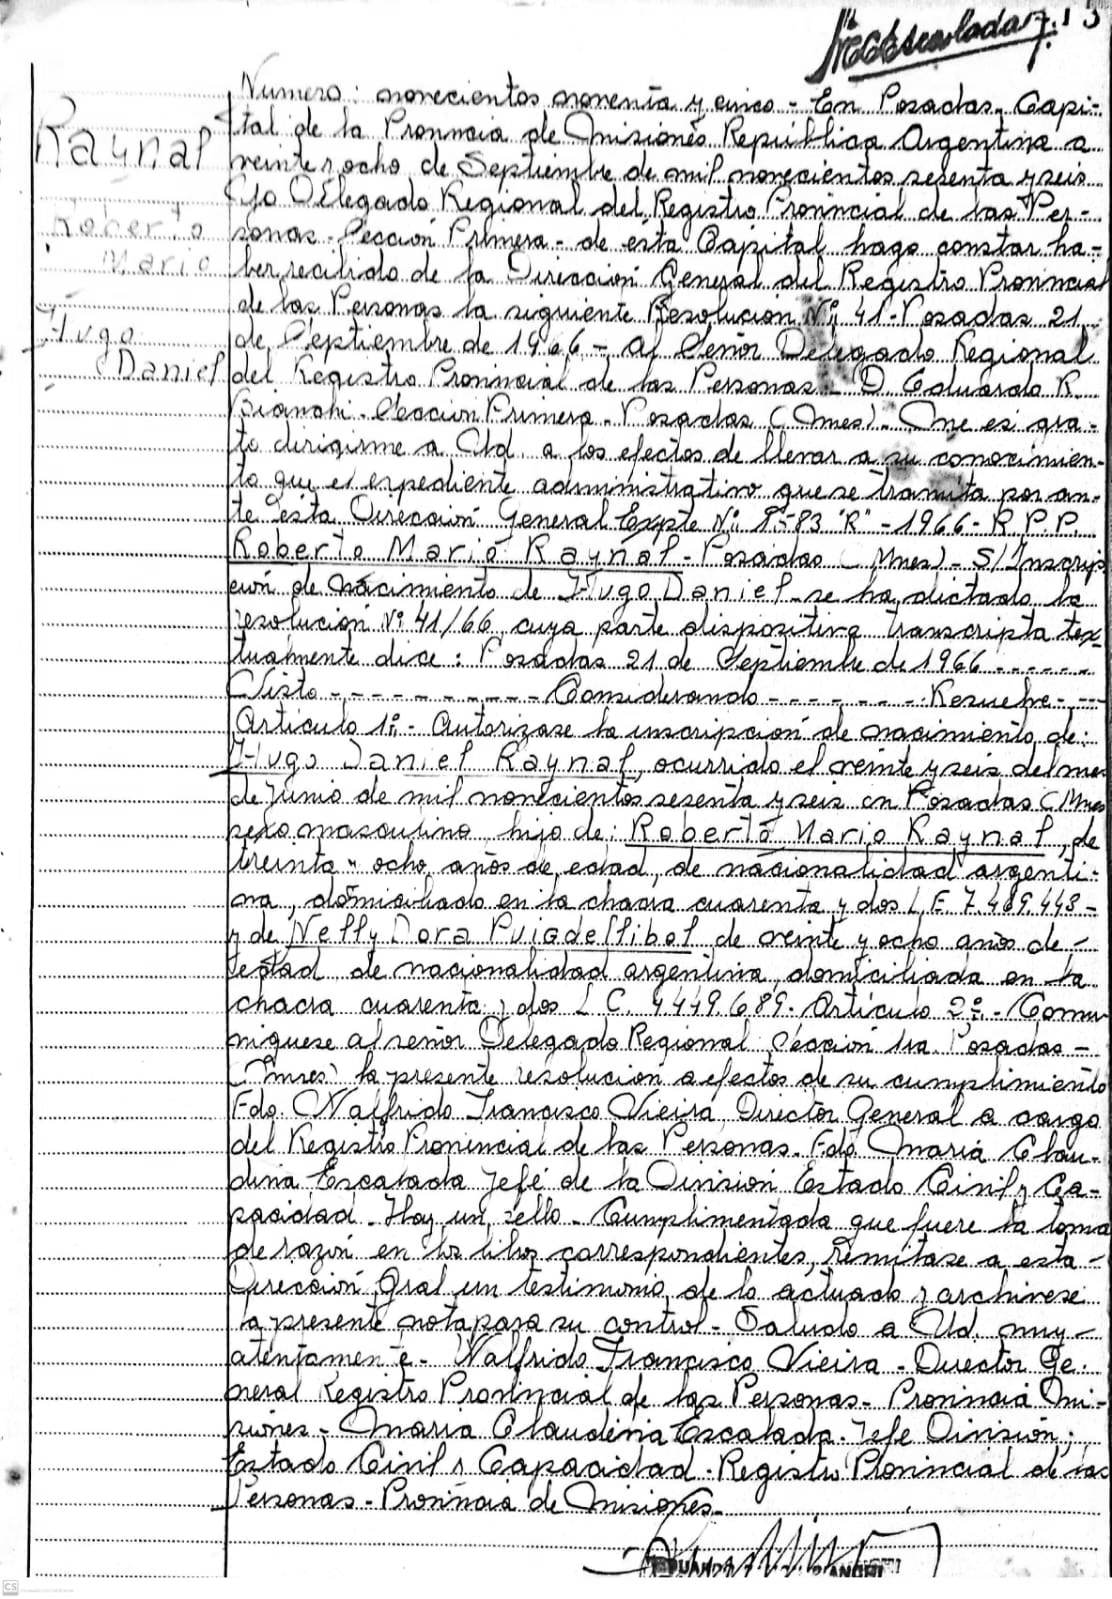 Raynal
Roberto
Mario
Hugo
Daniel
Numero: novecientos noventa y cinco - En Posadas, Capi-
tal de la Provincia de Misiones República Argentina a
veinte y ocho de Septiembre de mil novecientos sesenta y seis
Yo Delegado Regional del Registro Provincial de las Per-
sonas - Sección Primera - de esta Capital hago constar ha-
ber recibido de la Dirección General del Registro Provincial
de las Personas la siguiente Resolución Nº 41 - Posadas 21
de Septiembre de 1966 - Al Señor Delegado Regional
del Registro Provincial de las Personas - D. Eduardo R.
Bianchi - Sección Primera - Posadas (Mnes) - Me es gra-
to dirigirme a Ud. a los efectos de llevar a su conocimien-
to que el expediente administrativo que se tramita por an-
te esta Dirección General Expte Nº 83 "R" - 1966 - R.P.P.
Roberto Mario Raynal - Posadas (Mnes) - S/Inscrip
ción de nacimiento de Hugo Daniel - se ha dictado la
resolución Nº 41/66, cuya parte dispositiva transcripta tex-
tualmente dice: Posadas 21 de Septiembre de 1966 - - - - - -
Visto - - - - - - - - - - Considerando - - - - - - - - Resuelve - - -
Artículo 1º - Autorizase la inscripción de nacimiento de:
Hugo Daniel Raynal, ocurrido el veinte y seis del mes
de Junio de mil novecientos sesenta y seis en Posadas (Mnes
sexo masculino hijo de: Roberto Mario Raynal, de
treinta y ocho años de edad, de nacionalidad argenti-
na, domiciliado en la chacra cuarenta y dos L.E. 7.469.448 -
y de Nelly Dora Puigdellibol de veinte y ocho años de -
edad de nacionalidad argentina, domiciliada en la
chacra cuarenta y dos L.C. 4.449.689. Artículo 2º - Comu-
níquese al señor Delegado Regional Sección 1ra. Posadas -
(Mnes) la presente resolución a efectos de su cumplimiento
Fdo. Walfrido Francisco Vieira, Director General a cargo
del Registro Provincial de las Personas. Fdo Maria Clau-
dina Escalada Jefe de la División Estado Civil y Ca-
pacidad - Hay un sello - Cumplimentada que fuere la toma
de razón en los libros correspondientes, remítase a esta -
Dirección Gral un testimonio de lo actuado y archívese
la presente nota para su control - Saludo a Ud. muy -
atentamente - Walfrido Francisco Vieira - Director Ge-
neral Registro Provincial de las Personas - Provincia Mi-
siones - Maria Claudina Escalada - Jefe División,
Estado Civil y Capacidad - Registro Provincial de las
Personas - Provincia de Misiones -